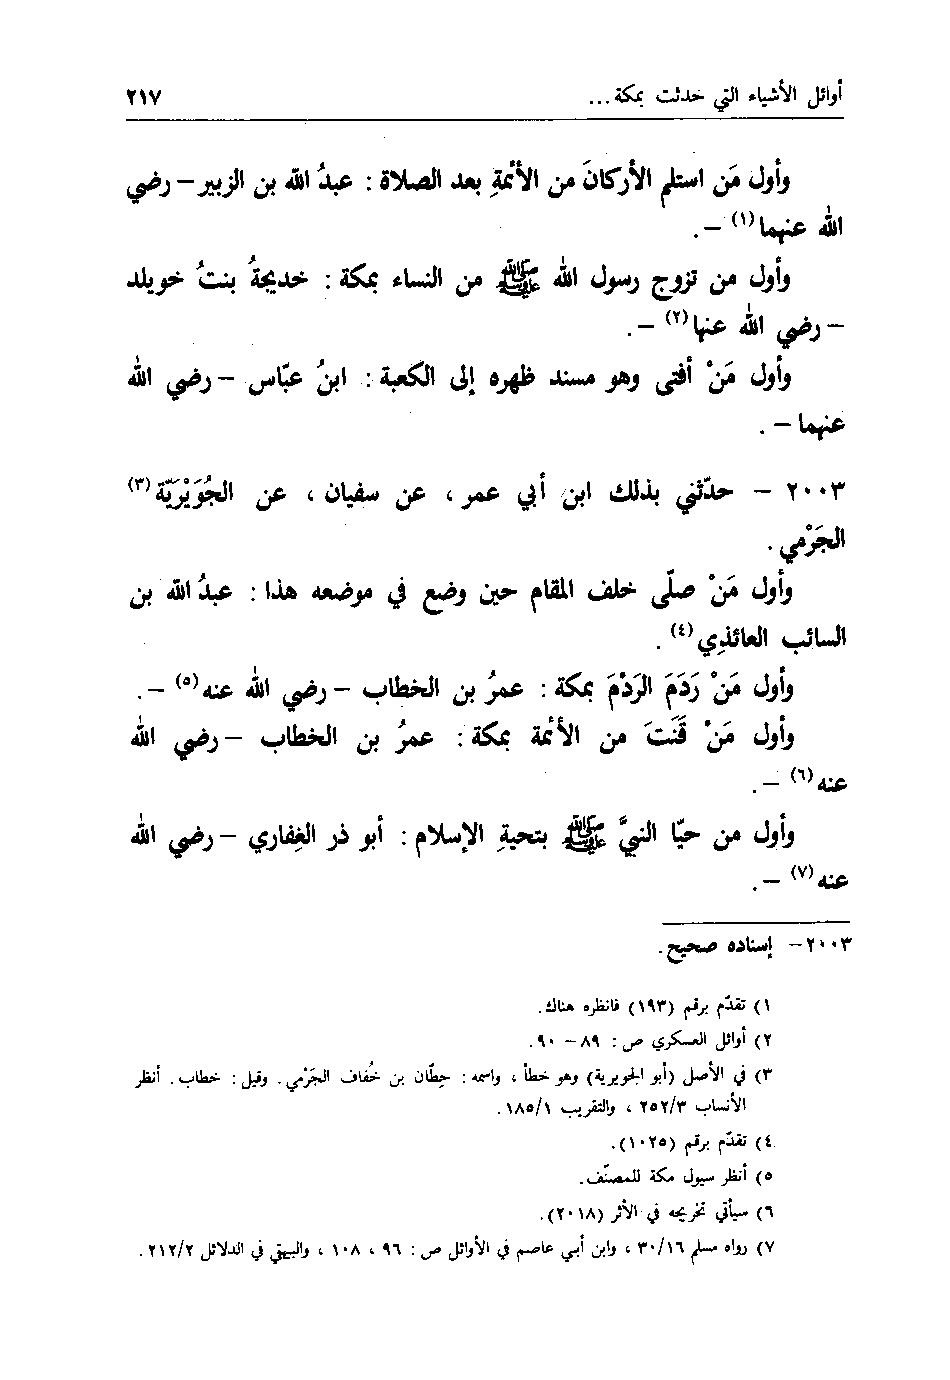 أوائل الأشياء التي حدثت بمكة... ٢١٧
وأول مَن استلم الأركانَ من الأئمةِ بعد الصلاة : عبدُ الله بن الزبير – رضي
الله عنهما(١) – .
وأول من تزوج رسول الله ﷺ من النساء بمكة : خديجةُ بنتُ خويلد
– رضي الله عنها(٢) – .
وأول مَنْ أفتى وهو مسند ظهره إلى الكعبة : ابنُ عبّاس – رضي الله
عنهما – .
٢٠٠٣ – حدّثني بذلك ابن أبي عمر ، عن سفيان ، عن الجُوَيْرَيّة(٣)
الجَرْمي .
وأول مَنْ صلّى خلف المقام حين وضع في موضعه هذا : عبدُ الله بن
السائب العائذي(٤) .
وأول مَنْ رَدَمَ الرَدْمَ بمكة : عمرُ بن الخطاب – رضي الله عنه(٥) – .
وأول مَنْ قَنَتَ من الأئمة بمكة : عمرُ بن الخطاب – رضي الله
عنه(٦) – .
وأول من حيّا النبيَّ ﷺ بتحيةِ الإسلام : أبو ذر الغِفاري – رضي الله
عنه(٧) – .
٢٠٠٣ – إسناده صحيح .
١) تقدّم برقم (١٩٣) فانظره هناك .
٢) أوائل العسكري ص : ٨٩ – ٩٠ .
٣) في الأصل (أبو الجويرية) وهو خطأ ، واسمه : حِطّان بن خُفاف الجَرْمي . وقيل : خطاب . أنظر
الأنساب ٢٥٢/٣ ، والتقريب ١٨٥/١ .
٤) تقدّم برقم (١٠٢٥) .
٥) أنظر سيول مكة للمصنّف .
٦) سيأتي تخريجه في الأثر (٢٠١٨) .
٧) رواه مسلم ٣٠/١٦ ، وابن أبي عاصم في الأوائل ص : ٩٦ ، ١٠٨ ، والبيهقي في الدلائل ٢١٢/٢ .